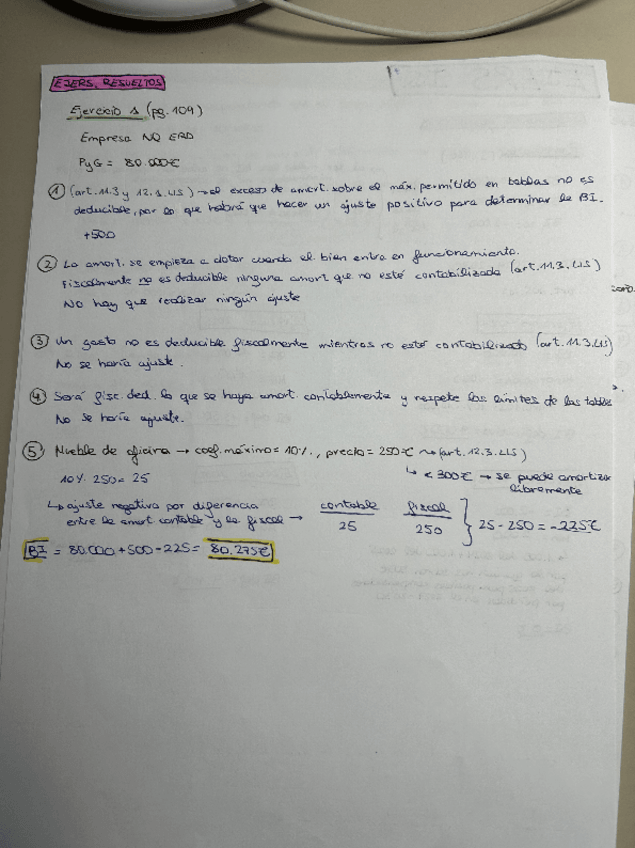 EJERS. RESUELTOS
Ejercicio 1 (pg. 109)
Empresa NO ERD
PyG = 80.000€
① (art. 11.3 y 12.1. LIS) → el exceso de amort. sobre el máx. permitido en tablas no es
deducible, por lo que habrá que hacer un ajuste positivo para determinar la BI.
+500
② La amort. se empieza a dotar cuando el bien entra en funcionamiento.
Fiscalmente no es deducible ninguna amort que no esté contabilizada (art. 11.3. LIS)
No hay que realizar ningún ajuste
③ Un gasto no es deducible fiscalmente mientras no esté contabilizado (art. 11.3. LIS)
No se haría ajuste.
④ Será fisc. ded. lo que se haya amort. contablemente y respete los límites de las tablas
No se haría ajuste.
⑤ Mueble de oficina → coef. máximo = 10%., precio = 250€ → (art. 12.3. LIS)
↳ < 300€ → se puede amortizar
libremente
10% 250 = 25
↳ ajuste negativo por diferencia
entre la amort contable y la fiscal →
contable fiscal
25 250 } 25 - 250 = -225€
BI = 80.000 + 500 - 225 = 80.275€